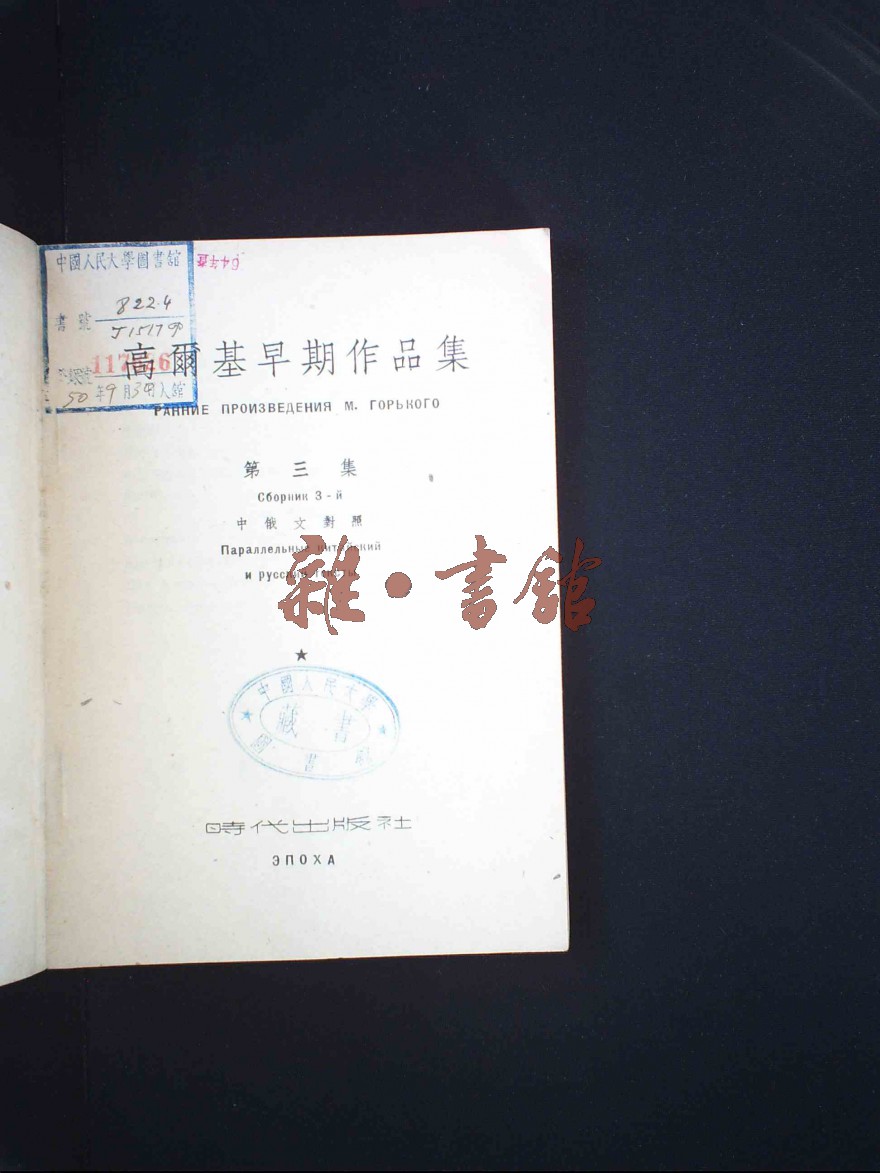 中國人民大學圖書舘
64年查
書號 822.4
J1517
50年9月30日入舘
高爾基早期作品集
РАННИЕ ПРОИЗВЕДЕНИЯ М. ГОРЬКОГО
第三集
Сборник 3-й
中俄文對照
Параллельные китайский
и русский тексты
雜·書舘
★
中國人民大學
藏書
圖書舘
時代出版社
ЭПОХА